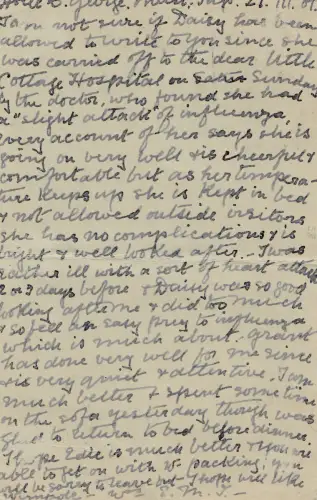 George
I am not sure if Daisy has been
allowed to write to you since she
was carried off to the dear little
Cottage Hospital on Sunday
by the doctor, who found she had
a "slight attack" of influenza,
every account of her says she is
going on very well & is cheerful &
comfortable but as her tempera-
ture keeps up she is kept in bed
& not allowed outside visitors
she has no complications & is
bright & well looked after. I was
rather ill with a sort of heart attack
2 or 3 days before & Daisy was so good
looking after me & did too much
& so fell an easy prey to influenza
which is much about. Grant
has done very well for me since
& is very quiet & attentive. I am
much better & spent some time
on the sofa yesterday though was
glad to return to bed before dinner.
I hope Edie is much better & you are
able to get on with yr packing, you
will be sorry to leave but I hope will like